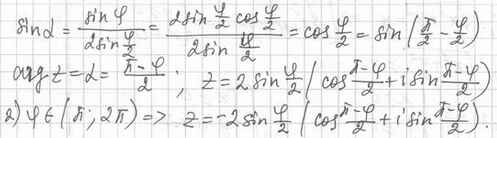 sin α = sin φ / (2 sin φ/2) = (2 sin φ/2 cos φ/2) / (2 sin φ/2) = cos φ/2 = sin (π/2 − φ/2)
arg z = α = (π−φ)/2 ; z = 2 sin φ/2 (cos (π−φ)/2 + i sin (π−φ)/2)
2) φ ∈ (π; 2π) => z = −2 sin φ/2 (cos (π−φ)/2 + i sin (π−φ)/2).